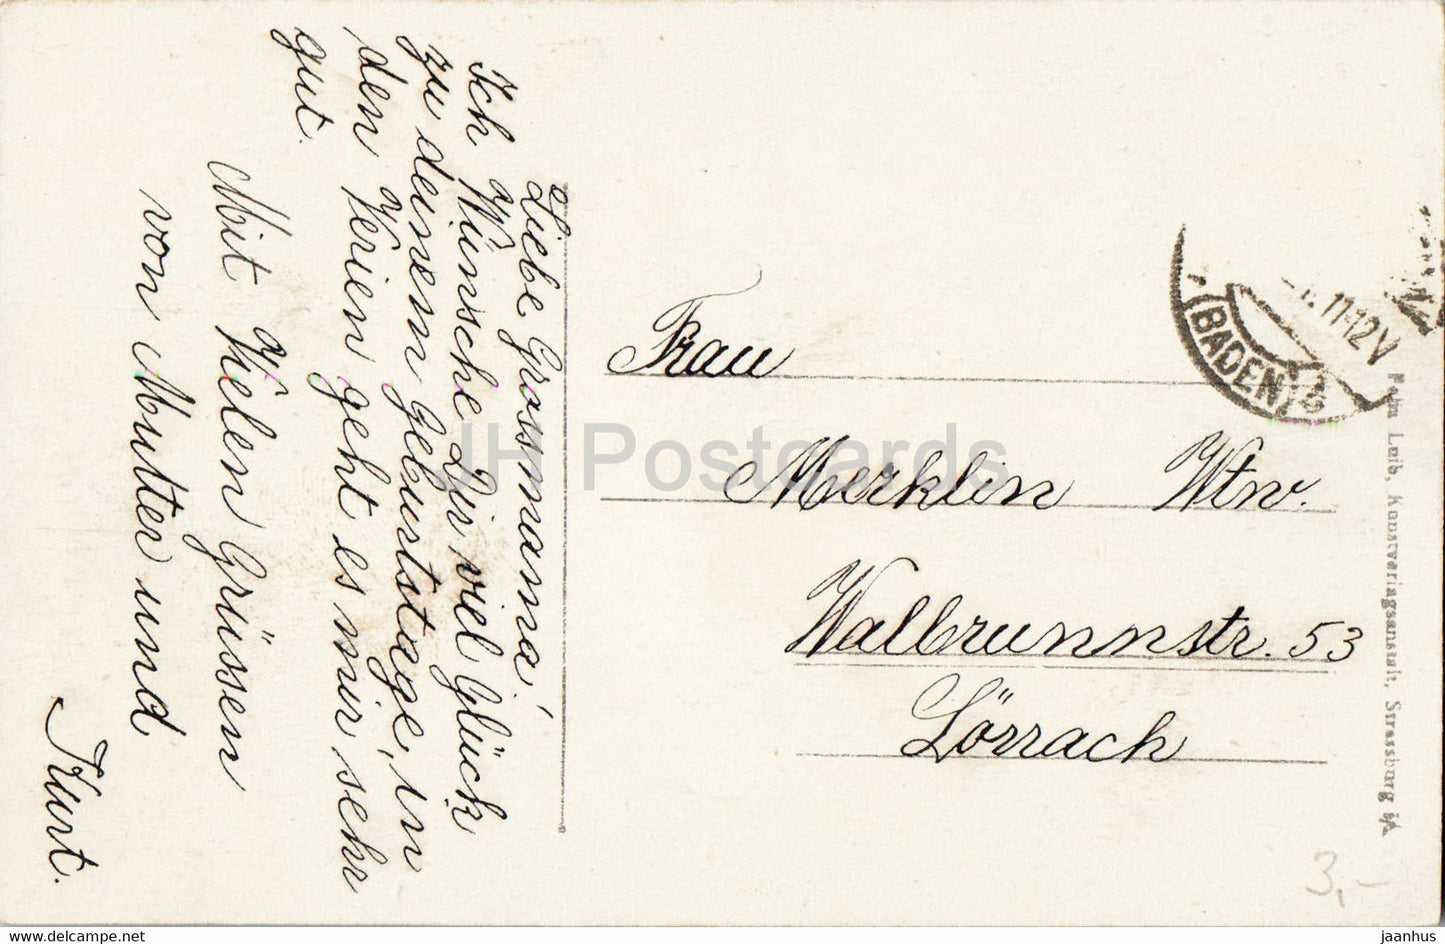 Liebe Grossmama.
Ich Wünsche Dir viel Glück
zu deinem Geburtstage, in
den Ferien geht es mir sehr
gut.
Mit Vielen Grüssen
von Mutter und
Kurt.
Frau
Merklin Wtw.
Walbrunnstr. 53
Lörrach
(BADEN)
11-12V
Luib, Kunstverlagsanstalt, Strassburg i/
3,-
JH Postcards
www.delcampe.net
jaanhus